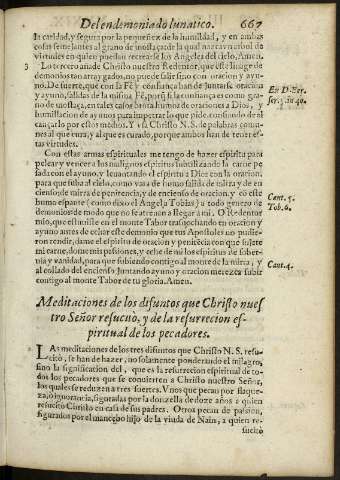 Del endemoniado lunatico. 667
la caridad, y segura por la pequeñez de la humildad, y en ambas
cosas semejantes al grano de mostaça de la qual nazca vn arbol de
virtudes en quien puedan recrearse los Angeles del cielo, Amen.
3 Lo tercero añade Christo nuestro Redentor, que este linage de
demonios tan arraygados, no puede salir sino con oracion y ayu
no. De suerte, que con la Fè y confiança han de juntarse oracion
y ayuno, salidas de la misma Fè, porque si la confiança es como gra-
no de mostaça, en tales casos brota humos de oraciones a Dios, y
humillacion de ayunos para impetrar lo que pide, confiando de al
cançarlo por estos medios. Y vsa Christo N.S. de palabras comu-
nes al que cura, y al que es curado, porque ambos han de tener es-
tas virtudes.
En D. Ber.
ser. 4. in 40.
Con estas armas espirituales me tengo de hazer espiritu para
pelear y vencer a los malignos espiritus sutilizando la carne pe
sada con el ayuno, y leuantando el espiritu a Dios con la oracion,
para que suba al cielo, como vara de humo salida de mirra y de en
cienso, de mirra de penitencia, y de encienso de oracion, y con este
humo espante (como dixo el Angel a Tobias) a todo genero de
demonios de modo que no se atreuan a llegar a mi. O Redentor
mio, que estuuiste en el monte Tabor trasfigurado en oracion y
ayuno antes de echar este demonio que tus Apostoles no pudie-
ron rendir, dame el espiritu de oracion y penitẽcia con que sujete
mi carne, dome mis passiones, y eche de mi los espiritus de sober-
uia y vanidad, para que subiendo contigo al monte de la mirra, y
al collado del encienso juntando ayuno y oracion merezca subir
contigo al monte Tabor de tu gloria. Amen.
Cant. 3.
Tob. 6.
Cant. 4.
Meditaciones de los difuntos que Christo nues
tro Señor resucitò, y de la resurrecion es-
piritual de los pecadores.
LAs meditaciones de los tres difuntos que Christo N.S. resu-
citò, se han de hazer, no solamente ponderando el milagro,
sino la significacion del, que es la resurrecion espiritual de to-
dos los pecadores que se conuierten a Christo nuestro Señor,
los quales se reduzen a tres suertes. Vnos que pecan por flaque-
za, ò ignorancia, figurados por la donzella de doze años a quien
resucitò Christo en casa de sus padres. Otros pecan de passion,
figurados por el mancebo hijo de la viuda de Nain, a quien re-
sucitò